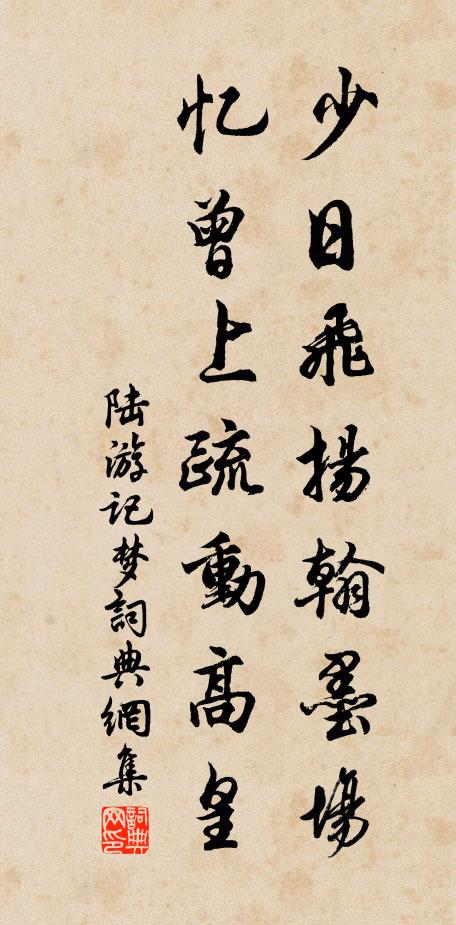 少日飛揚翰墨場
忆曾上疏動高皇
陆游记梦詞典網集
詞典网印